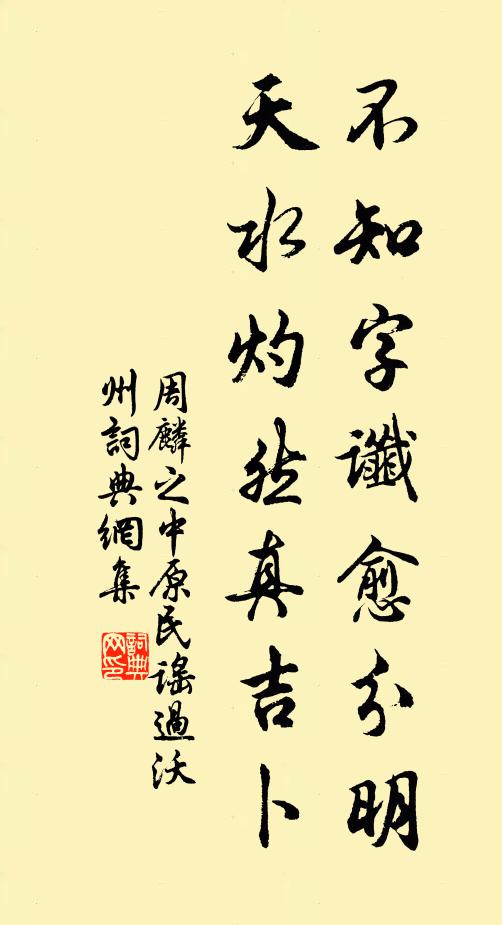 不知字讖愈分明
天水灼然真吉卜
周麟之中原民謠過沃
州詞典網集
詞典
网印